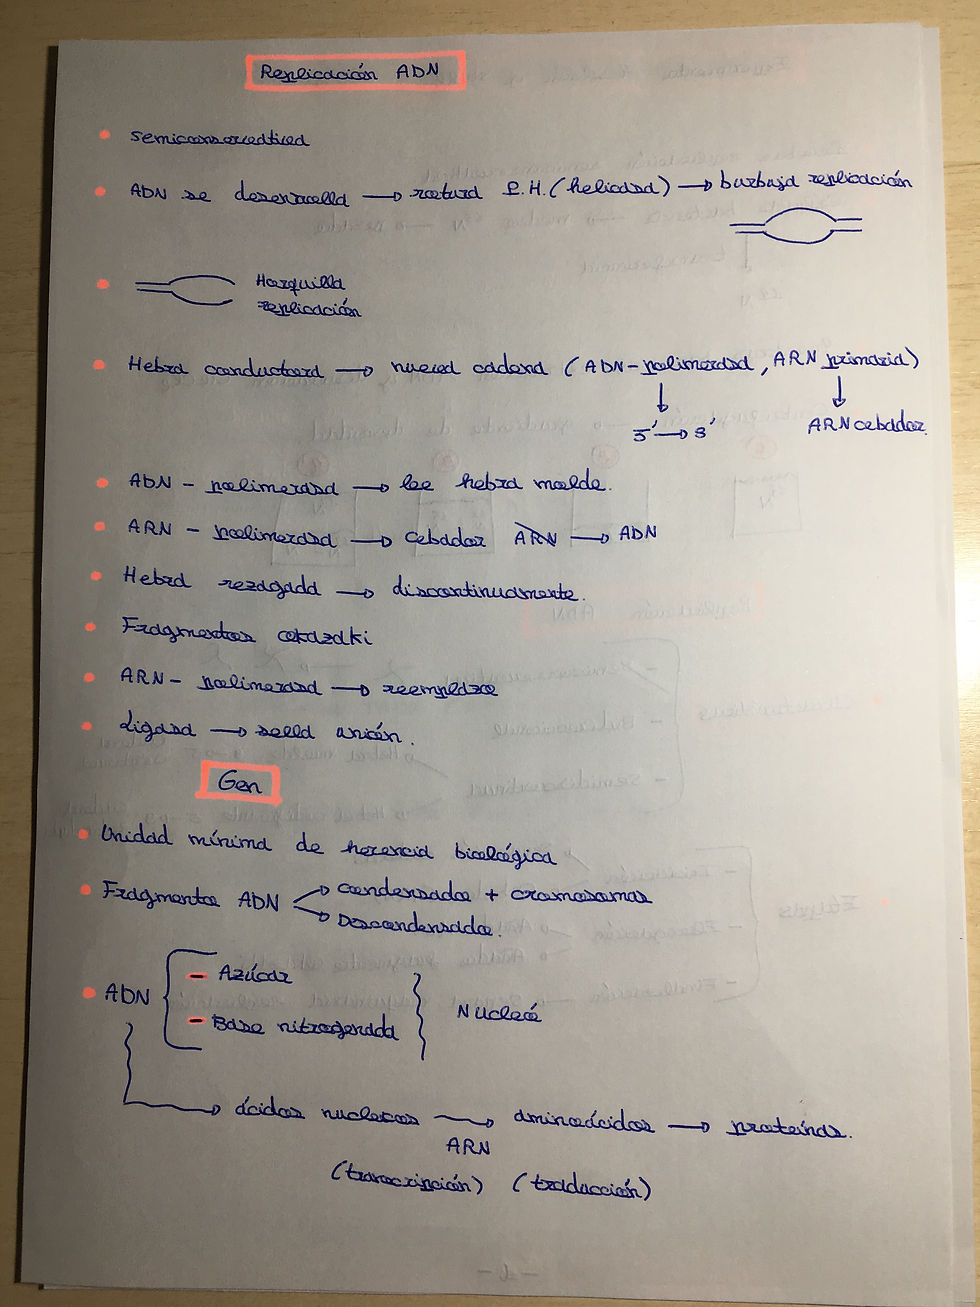 Replicación ADN
• semiconservativa
• ADN se desenrolla → rotura P.H. (helicasa) → burbuja replicación
• Horquilla
replicación
• Hebra conductora → nueva cadena (ADN-polimerasa, ARN primaria)
5' → 3' ARN cebador.
• ADN - polimerasa → lee hebra molde.
• ARN - polimerasa → cebador ARN → ADN
• Hebra rezagada → discontinuamente.
• Fragmentos okazaki
• ARN - polimerasa → reemplazo
• Ligasa → sella unión.
Gen
• Unidad mínima de herencia biológica
• Fragmento ADN → condensado + cromosomas
→ Descondensado.
• ADN - Azúcar
- Base nitrogenada Nucleó
→ ácidos nucleicos → aminoácidos → proteínas.
ARN
(transcripción) (traducción)